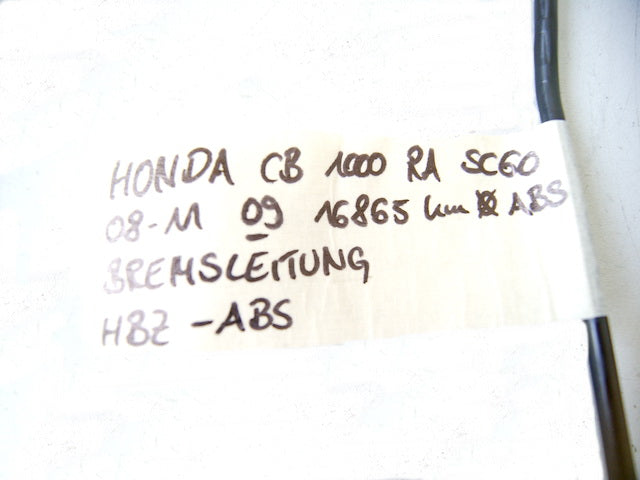 HONDA CB 1000 RA SC60
08-11 09 16865 km ABS
BREMSLEITUNG
HBZ - ABS